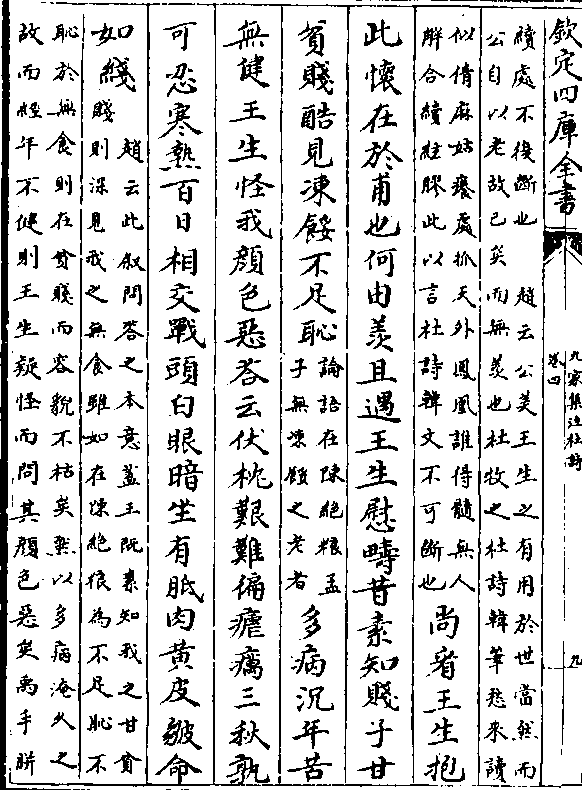 欽定四庫全書
九家集注杜詩
卷四
九
續處不復斷也 趙云公羡王生之有用於世當然而
公自以老故已矣而無羡也杜牧之杜詩韓筆愁來讀
似倩麻姑癢處抓天外鳳凰誰得髓無人
解合續絃膠此以言杜詩韓文不可斷也
尚看王生抱
此懷在於甫也何由羡且遇王生慰疇昔素知賤子甘
貧賤酷見凍餒不足恥
論語在陳絶糧孟
子無凍餒之老者
多病沉年苦
無健王生怪我顔色惡荅云伏枕艱難徧瘧癘三秋孰
可忍寒熱百日相交戰頭白眼暗坐有胝肉黄皮皺命
如綫
趙云此叙問荅之本意蓋王既素知我之甘貧
賤則深見我之無食雖如在陳絶糧為不足恥不
恥於無食則在貧賤而容貌不枯矣然以多病淹久之
故而經年不健則王生疑怪而問其顔色惡矣禹手胼